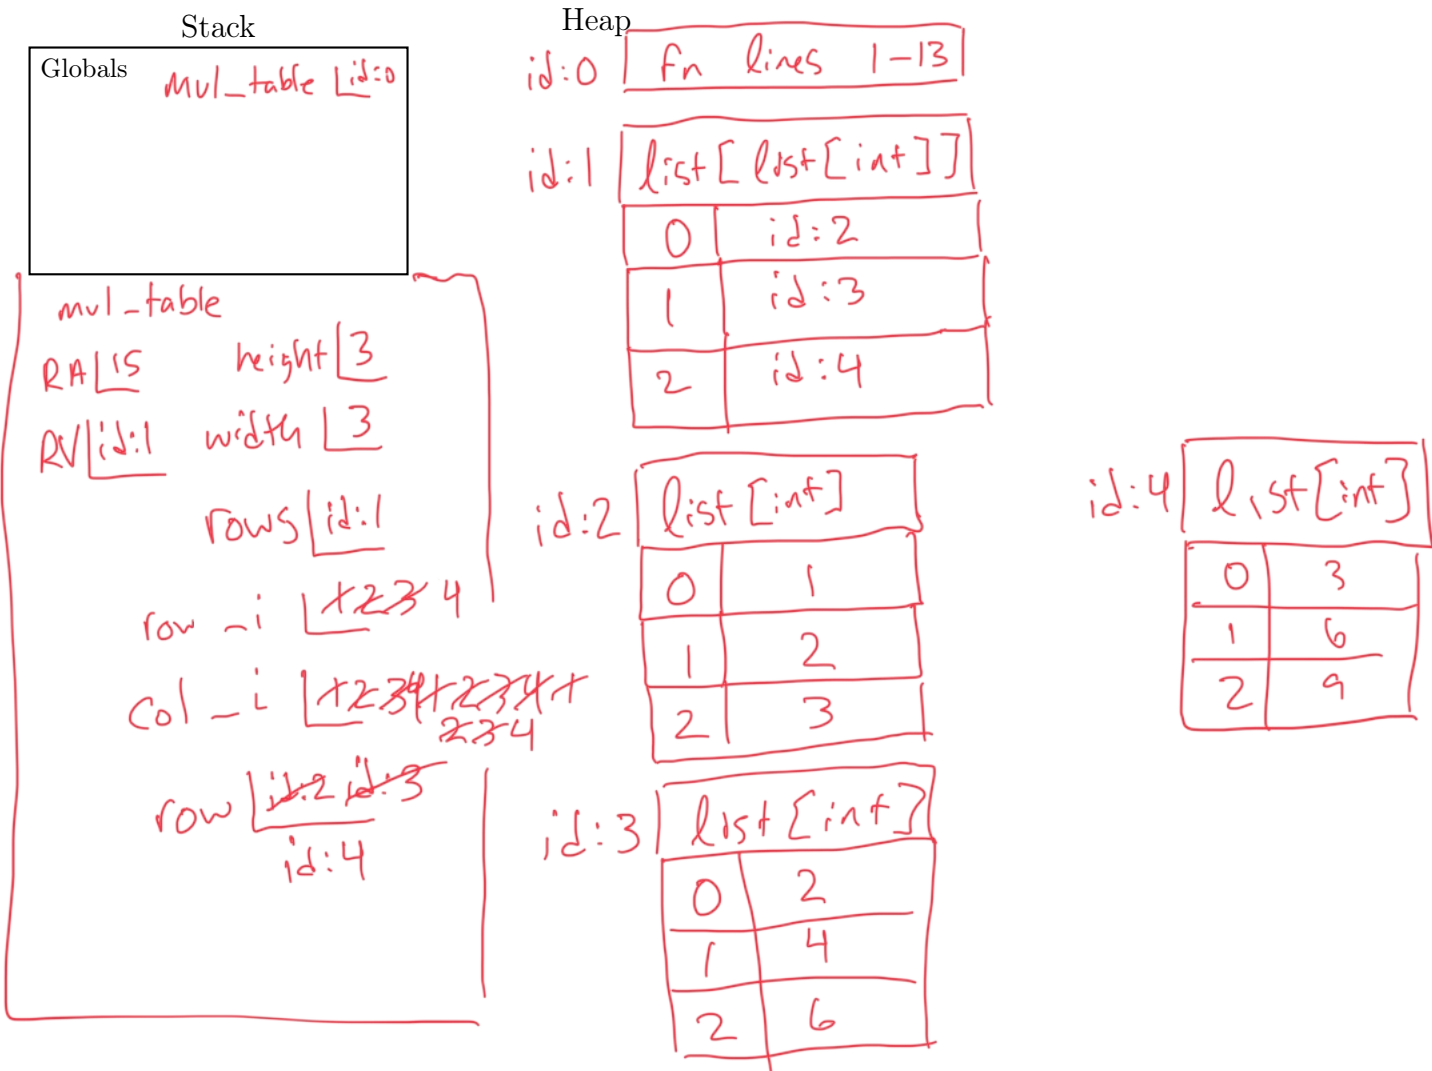 Stack
Globals
mul_table id:0
mul_table
RA 15
height 3
RV id:1
width 3
rows id:1
row_i 1 2 3 4
col_i 1 2 3 4 1 2 3 4 1
2 3 4
row id:2 id:3
id:4
Heap
id:0 fn lines 1-13
id:1 list[list[int]]
0 id:2
1 id:3
2 id:4
id:2 list[int]
0 1
1 2
2 3
id:3 list[int]
0 2
1 4
2 6
id:4 list[int]
0 3
1 6
2 9